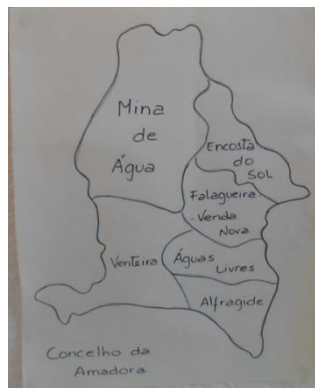 Mina
de
Água
Encosta
do
SOL
Falagueira
- Venda
Nova
Venteira
Águas
Livres
Alfragide
Concelho da
Amadora